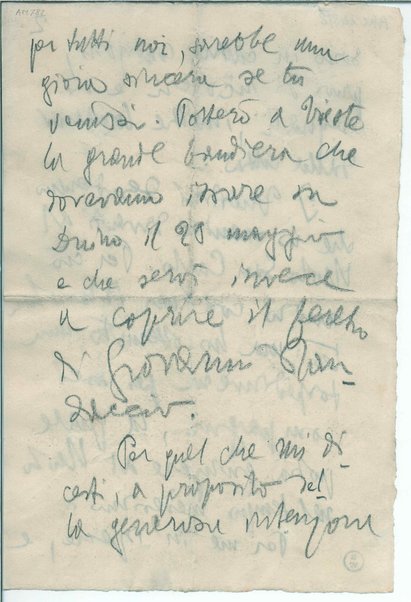 AM 782
per tutti noi, sarebbe una
gioia sincera se tu
venissi. Porterò a Trieste
la grande bandiera che
dovevamo issare su
Duino il 28 maggio
e che servì invece
a coprire il feretro
di Giovanni Ran-
daccio.
Per quel che mi di-
cesti, a proposito del-
la generosa intenzione